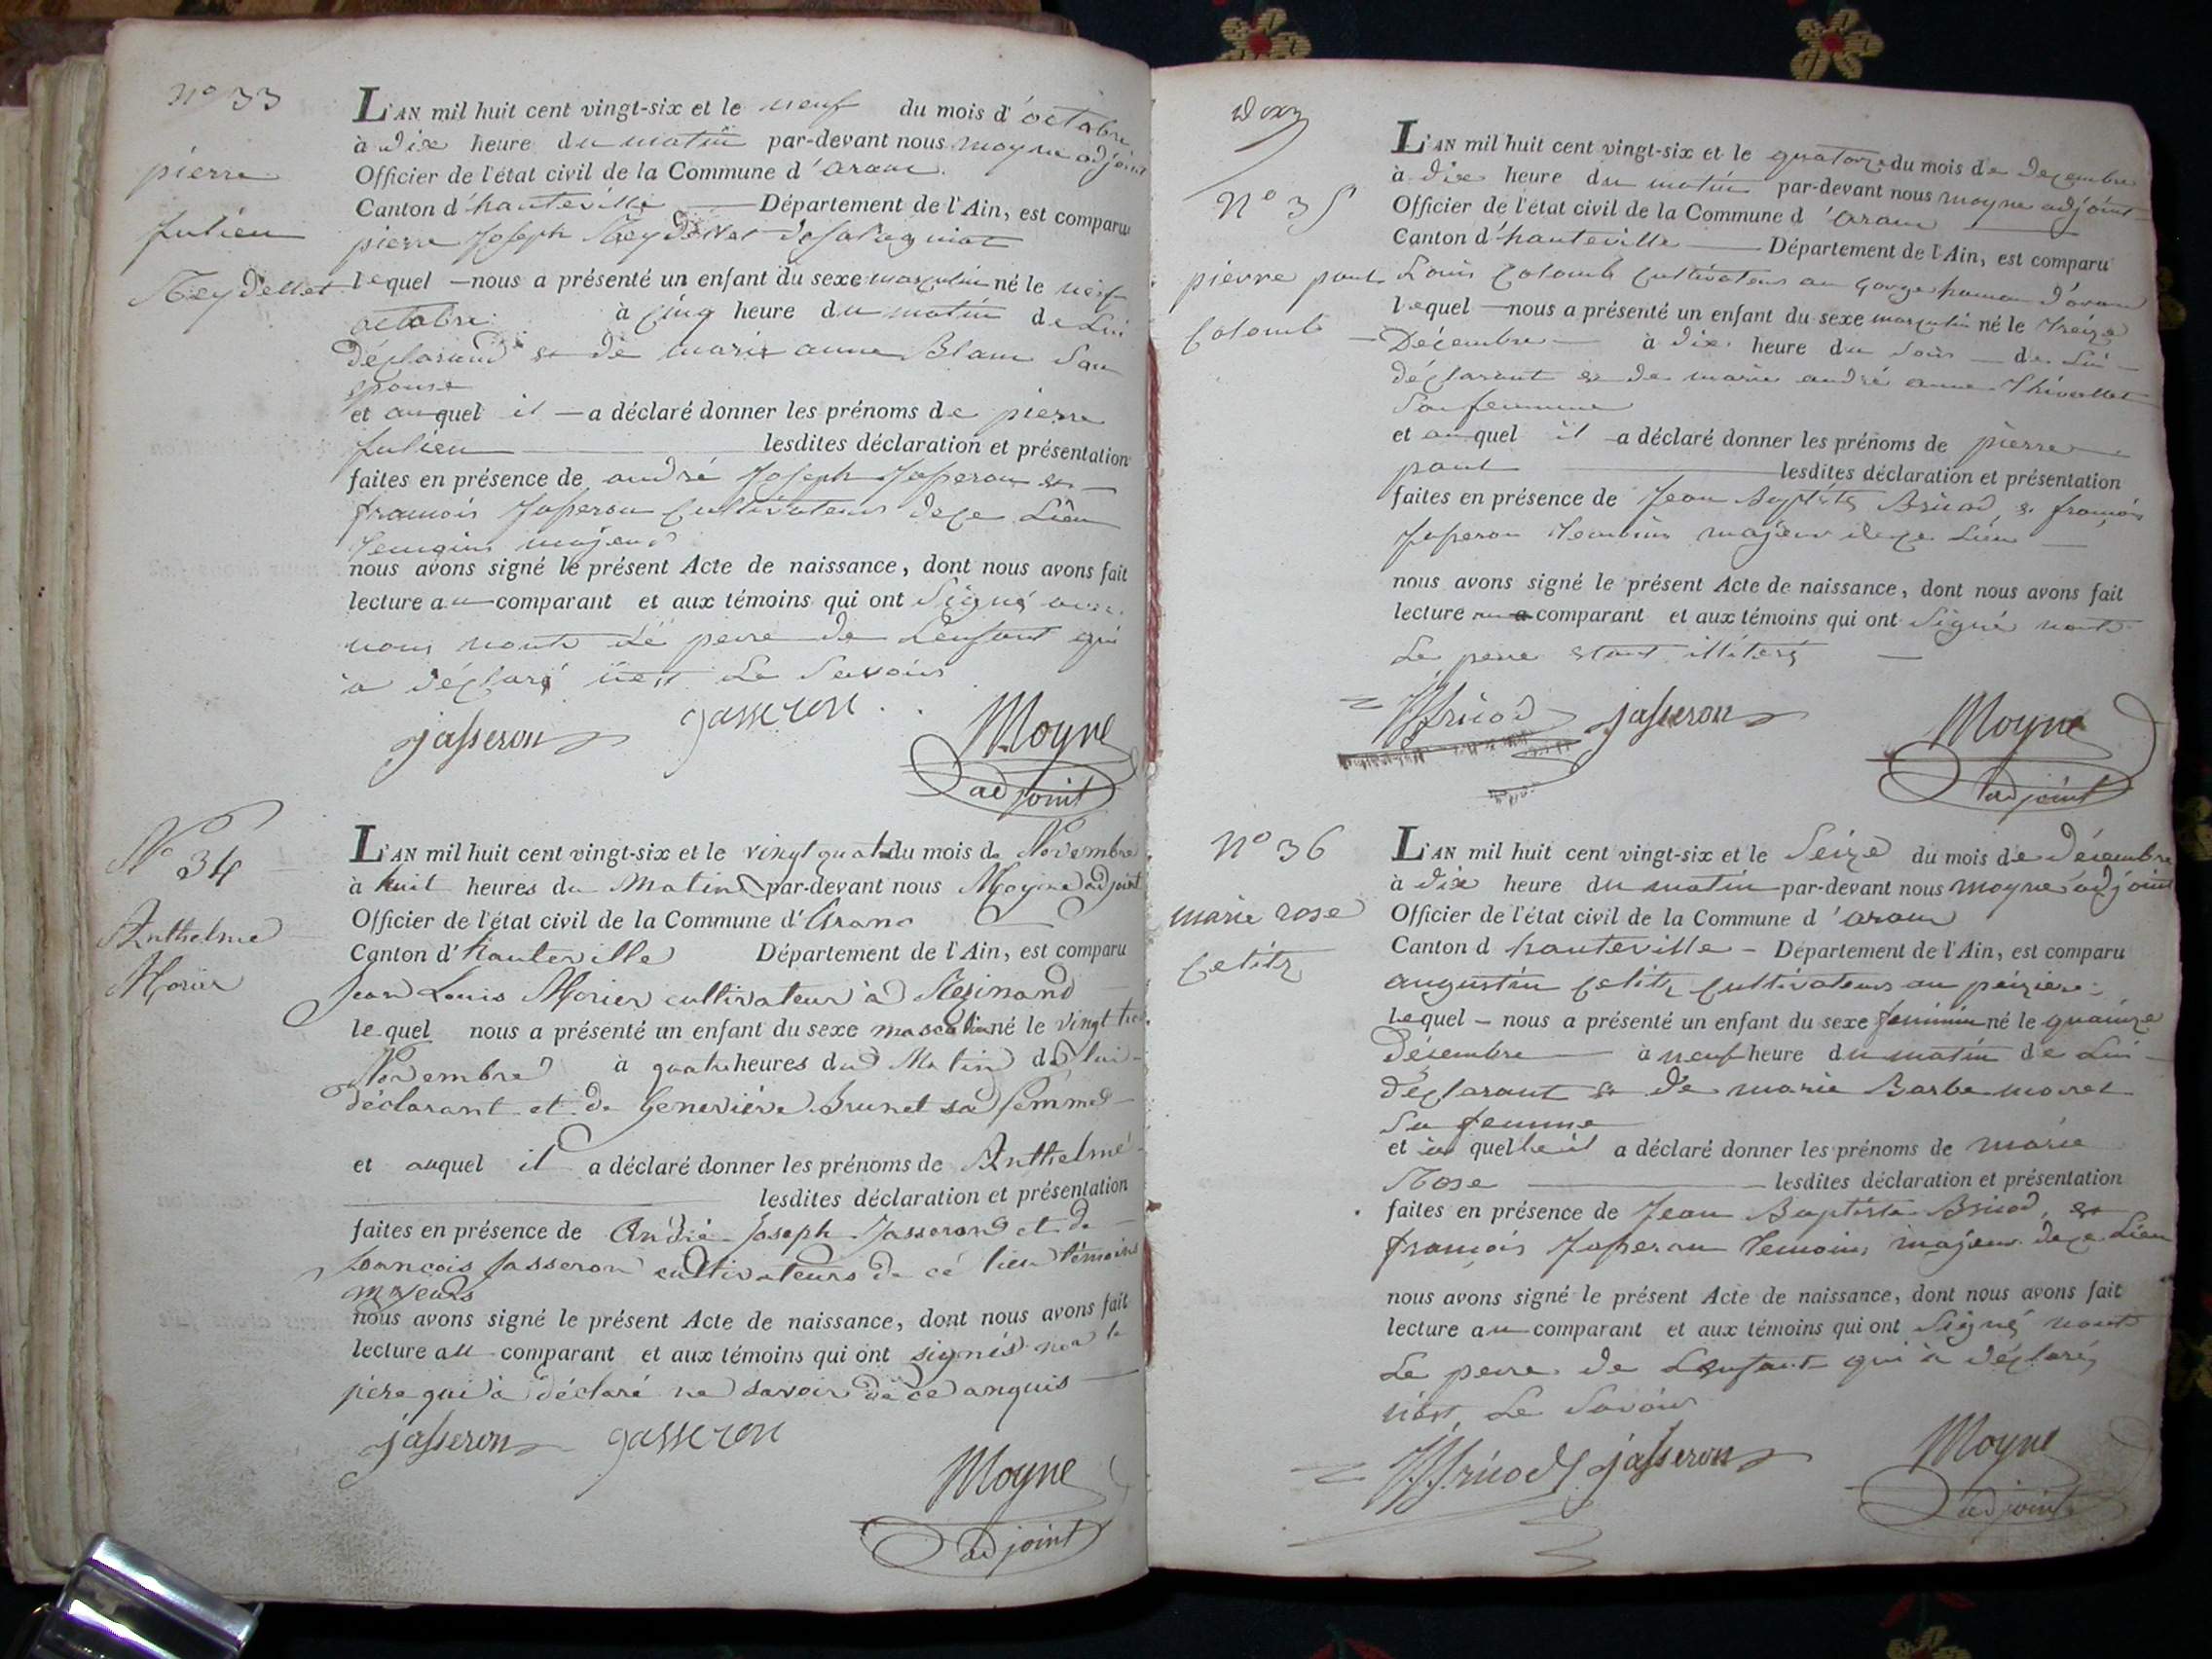 N° 33
pierre
julien
Reydellet
L'AN mil huit cent vingt-six et le neuf du mois d'octobre
à dix heure du matin par-devant nous moyne adjoint
Officier de l'état civil de la Commune d'aranc
Canton d'hauteville Département de l'Ain, est comparu
pierre Joseph Reydellet
lequel nous a présenté un enfant du sexe masculin né le neuf
octobre à cinq heure du matin de Lui
déclarand et de marie anne Blanc Son
epouse
et auquel il a déclaré donner les prénoms de pierre
julien lesdites déclaration et présentation
faites en présence de andré Joseph Jasseron et
francois Jasseron Cultivateurs de ce Lieu
temoins majeurs
nous avons signé le présent Acte de naissance, dont nous avons fait
lecture au comparant et aux témoins qui ont Signé avec
nous nonts Le pere de Lenfant qui
a déclaré Le Savoir
jasseron gasseron Moyne
adjoint
N° 34
Anthelme
Morier
L'AN mil huit cent vingt-six et le vingt quatre du mois de Novembre
à huit heures du Matin par-devant nous Moyne adjoint
Officier de l'état civil de la Commune d'Aranc
Canton d'hauteville Département de l'Ain, est comparu
Jean Louis Morier cultivateur à Rezinand
lequel nous a présenté un enfant du sexe masculin né le vingt trois
Novembre à quatre heures du Matin de lui
déclarant et de Geneviève Brunet sa femme
et auquel il a déclaré donner les prénoms de Anthelme
lesdites déclaration et présentation
faites en présence de André Joseph Jasseron et de
francois Jasseron cultivateurs de ce lieu témoins
majeurs
nous avons signé le présent Acte de naissance, dont nous avons fait
lecture au comparant et aux témoins qui ont signés non le
père qui à déclaré ne savoir de ce anquis
jasseron gasseron
Moyne
adjoint
N° 35
pierre paul
Colomb
L'AN mil huit cent vingt-six et le quatorze du mois de Decembre
à dix heure du matin par-devant nous moyne adjoint
Officier de l'état civil de la Commune d'aranc
Canton d'hauteville Département de l'Ain, est comparu
Louis Colomb Cultivateur au hamau d'aranc
lequel nous a présenté un enfant du sexe masculin né le treize
Décembre à dix heure du Soir de Lui
déclarant et de marie andré anne Thévollet
Sa femme
et auquel il a déclaré donner les prénoms de pierre
paul lesdites déclaration et présentation
faites en présence de Jean Baptiste Bricod, et françois
Jasseron temoins majeur de ce Lieu
nous avons signé le présent Acte de naissance, dont nous avons fait
lecture au comparant et aux témoins qui ont Signé nonts
Le pere etant illiteré
Bricod jasseron Moyne
adjoint
N° 36
marie rose
Celitz
L'AN mil huit cent vingt-six et le Seize du mois de Décembre
à dix heure du matin par-devant nous moyne adjoint
Officier de l'état civil de la Commune d'aranc
Canton d hauteville Département de l'Ain, est comparu
augustin Celitz Cultivateur au
Lequel nous a présenté un enfant du sexe féminin né le quainze
Décembre à neuf heure du matin de Lui
déclarant et de marie Barbe moret
Sa femme
et à quelle il a déclaré donner les prénoms de marie
Rose lesdites déclaration et présentation
faites en présence de Jean Baptiste Bricod, et
françois Jasseron temoins majeur de ce Lieu
nous avons signé le présent Acte de naissance, dont nous avons fait
lecture au comparant et aux témoins qui ont Signé nonts
Le pere de Lenfant qui a déclaré
Le Savoir
Bricod jasseron Moyne
adjoint